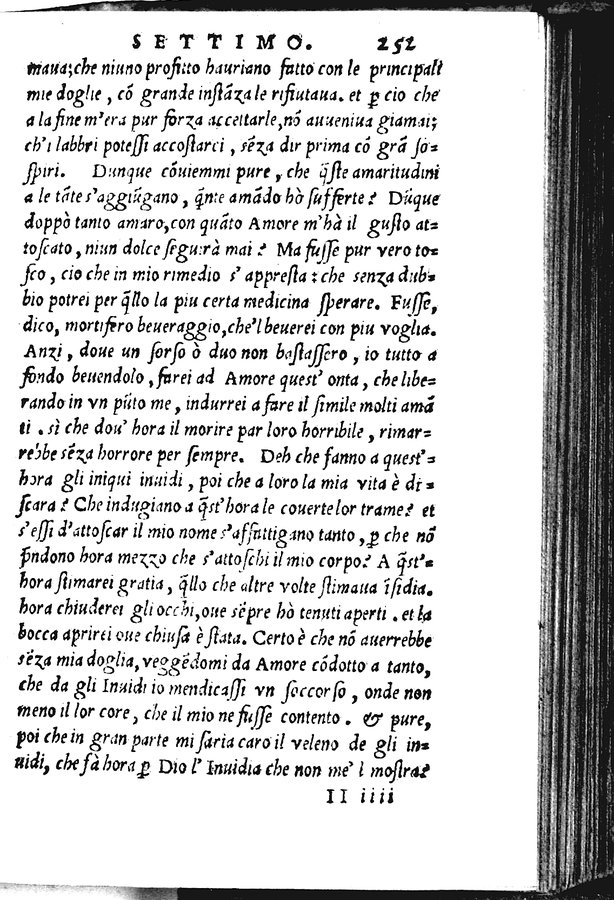 SETTIMO. 252
maua; che niuno profitto hauriano fatto con le principali
mie doglie, cõ grande instãza le rifiutaua. et ꝑ cio che
a la fine m'era pur forza accettarle, nõ aueniua giamai;
ch'i labbri potessi accostarci, sẽza dir prima cõ grã so=
spiri. Dunque cõuiemmi pure, che q̃ste amaritudini
a le tãte s'aggiũgano, q̃nte amãdo hò sufferte? Dũque
doppò tanto amaro, con quãto Amore m'hà il gusto at=
toscato, niun dolce seguirà mai? Ma fusse pur vero to=
sco, cio che in mio rimedio s'appresta: che senza dub=
bio potrei per q̃llo la piu certa medicina sperare. Fusse,
dico, mortifero beueraggio, che'l beuerei con piu voglia.
Anzi, doue un sorso ò duo non bastassero, io tutto a
fondo beuendolo, farei ad Amore quest'onta, che libe=
rando in vn pũto me, indurrei a fare il simile molti amã
ti. sì che dou'hora il morire par loro horribile, rimar=
rebbe sẽza horrore per sempre. Deh che fanno a quest'=
hora gli iniqui inuidi, poi che a loro la mia vita è di=
scara? Che indugiano a q̃st'hora le couerte lor trame? et
s'essi d'attoscar il mio nome s'affattigano tanto, ꝑ che nõ
p̃ndono hora mezzo che s'attoschi il mio corpo? A q̃st'=
hora stimarei gratia, q̃llo che altre volte stimaua ĩsidia.
hora chiuderei gli occhi, oue sẽpre hò tenuti aperti. et la
bocca aprirei oue chiusa è stata. Certo è che nõ auerrebbe
sẽza mia doglia, veggẽdomi da Amore cõdotto a tanto,
che da gli Inuidi io mendicassi vn soccorso, onde non
meno il lor core, che il mio ne fusse contento. & pure,
poi che in gran parte mi saria caro il veleno de gli in=
uidi, che fà hora ꝑ Dio l'Inuidia che non me'l mostra?
II iiii